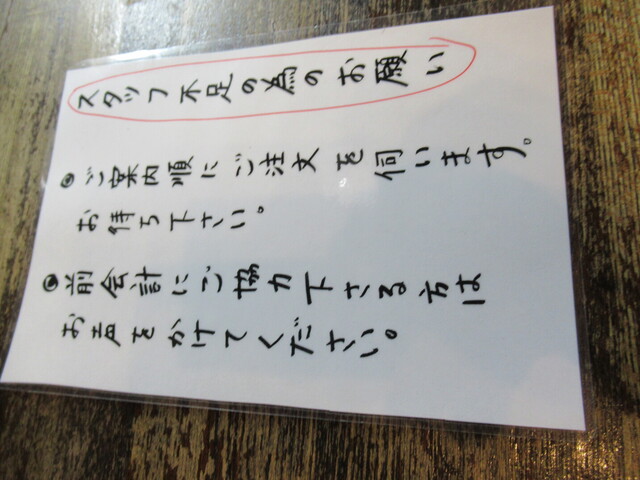 スタッフ不足の為のお願い
◎ご案内順にご注文を伺います。
お待ち下さい。
◎前会計にご協力下さる方は
お声をかけてください。